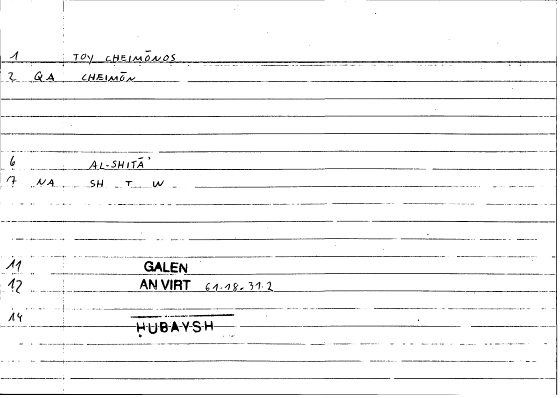 1 TOY CHEIMŌNOS
2 QA CHEIMŌN
6 AL-SHITĀʾ
7 NA SH T W
11 GALEN
12 AN VIRT 61.18-31.2
14 ḤUBAYSH